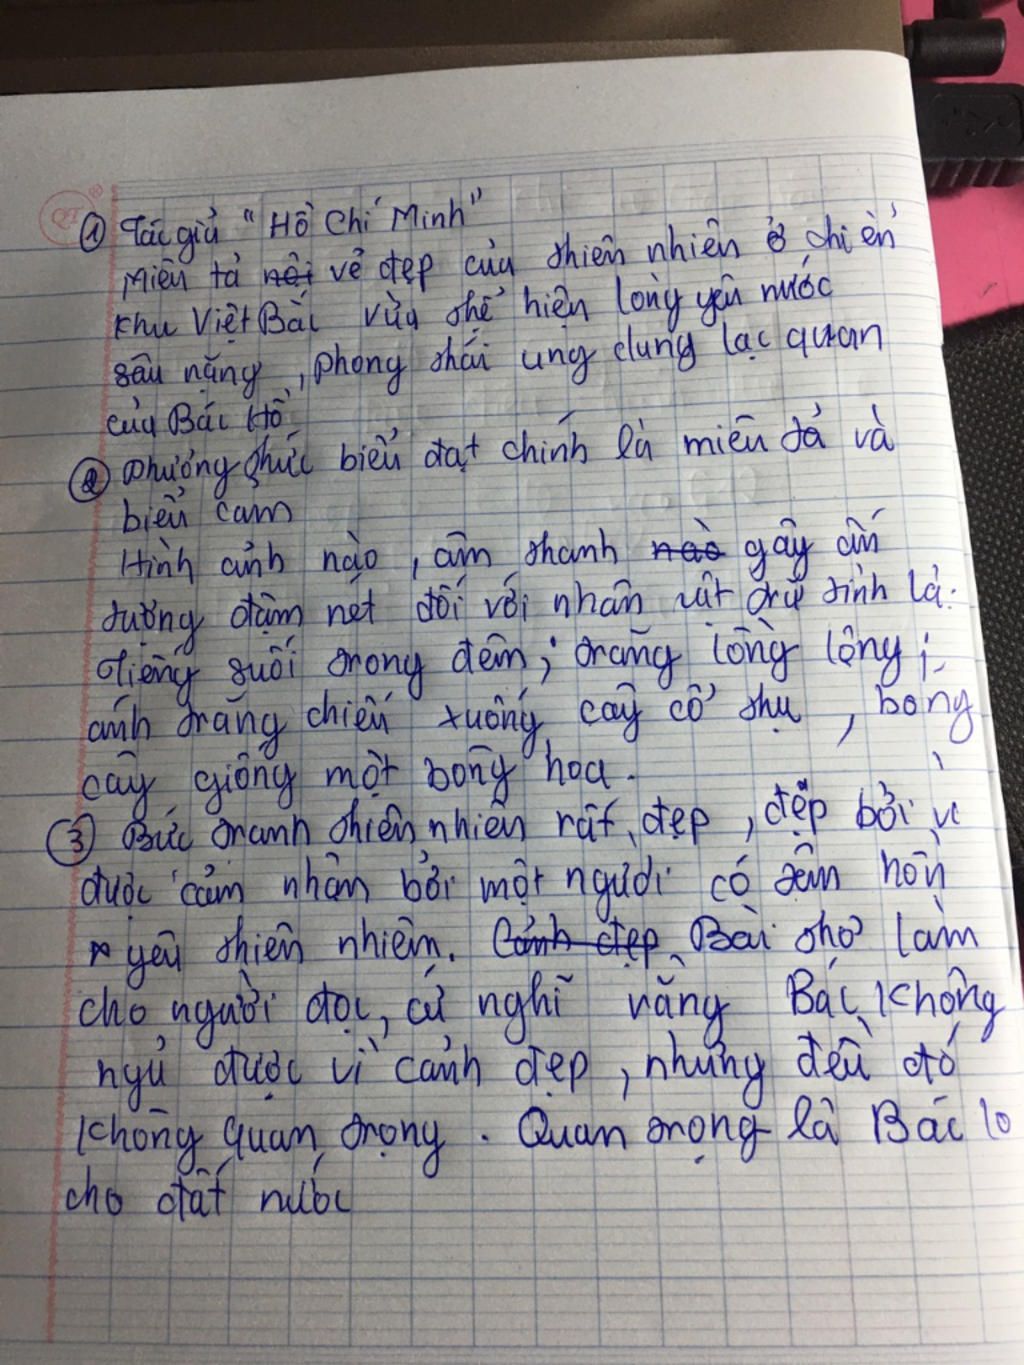 QT ®
① Tác giả "Hồ Chí Minh"
Miêu tả nội vẻ đẹp của thiên nhiên ở chiến
khu Việt Bắc vừa thể hiện lòng yêu nước
sâu nặng, phong thái ung dung lạc quan
của Bác Hồ
② Phương thức biểu đạt chính là miêu tả và
biểu cảm
Hình ảnh nào, âm thanh nào gây ấn
tượng đậm nét đối với nhân vật trữ tình là:
Tiếng suối trong đêm; trăng lồng lộng;
ánh trăng chiếu xuống cây cổ thụ, bóng
cây giống một bông hoa.
③ Bức tranh thiên nhiên rất đẹp, đẹp bởi vì
được cảm nhận bởi một người có tâm hồn
yêu thiên nhiên. Cảnh đẹp Bài thơ làm
cho người đọc, cứ nghĩ rằng Bác không
ngủ được vì cảnh đẹp, nhưng đều đó
không quan trọng. Quan trọng là Bác lo
cho đất nước